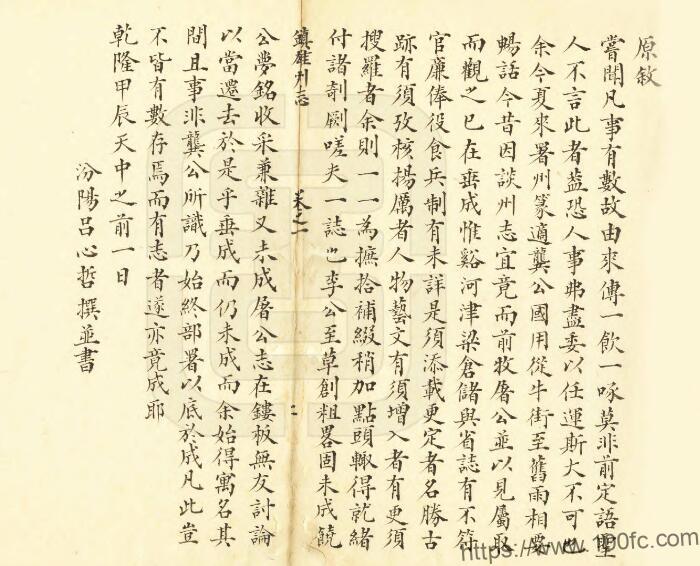 原敘
嘗聞凡事有數故由來傳一飲一啄莫非前定語聖
人不言此者葢恐人事弗盡委以任運斯大不可也
余今夏來署州篆適龔公國用從牛街至舊雨相聚
暢話今昔因談州志宜竟而前牧屠公並以見屬取
而觀之已在垂成惟谿河津梁倉儲與省誌有不符
官廉俸役食兵制有未詳是須添載更定者名勝古
跡有須攷核揚厲者人物藝文有須增入者有更須
搜羅者余則一一為摭拾補綴稍加點頭輙得就緒
付諸剞劂嗟夫一誌也李公至草創粗畧固未成饒
鎮雄州志 卷之一 二
公夢銘收采兼雜又未成屠公志在鏤板無友討論
以當遷去於是乎垂成而仍未成而余始得寓名其
間且事非龔公所識乃始終部署以底於成凡此豈
不皆有數存焉而有志者遂亦竟成耶
乾隆甲辰天中之前一日
汾陽呂心哲撰並書
https://www.190fc.com